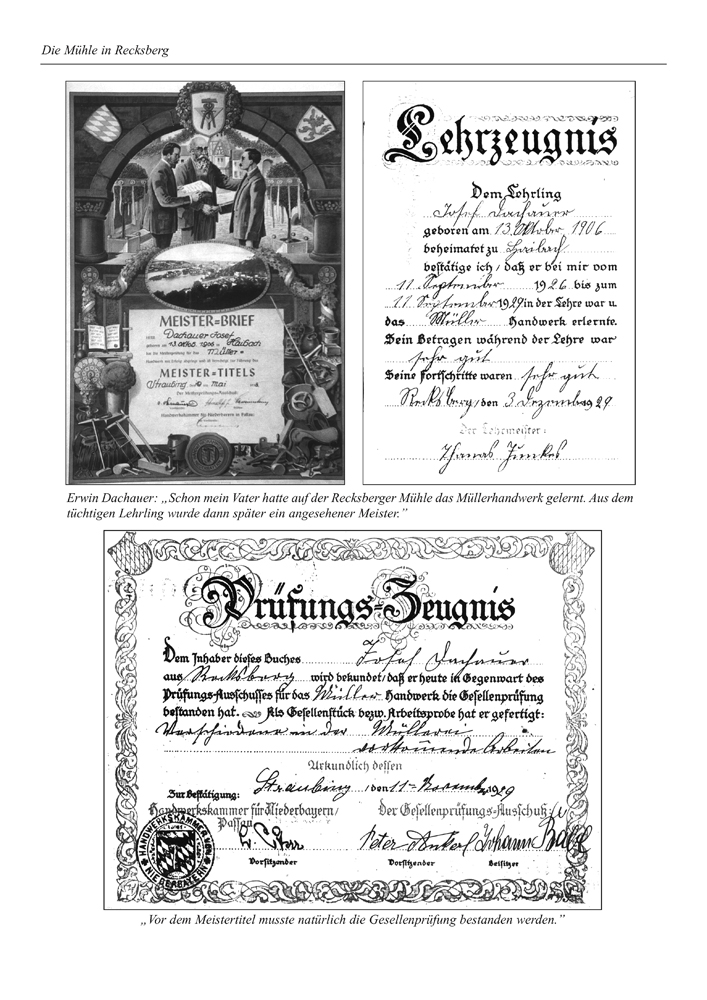 Die Mühle in Recksberg
MEISTER=BRIEF
Dachauer Josef
geboren am 13. Okt. 1906 in Haibach
hat die Meisterprüfung für das Müller=
MEISTER=TITELS
Straubing 10 Mai
Der Meisterprüfungs-Ausschuß:
Handwerkskammer für Niederbayern in Passau
Lehrzeugnis
Dem Lehrling
Josef Dachauer
geboren am 13. Oktober 1906
beheimatet zu Haibach
bestätige ich, daß er bei mir vom
11. September 1926 bis zum
11. September 1929 in der Lehre war u.
das Müller Handwerk erlernte.
Sein Betragen während der Lehre war
sehr gut
Seine Fortschritte waren sehr gut
Recksberg, den 3. Dezemb. 1929
Der Lehrmeister:
Erwin Dachauer: „Schon mein Vater hatte auf der Recksberger Mühle das Müllerhandwerk gelernt. Aus dem
tüchtigen Lehrling wurde dann später ein angesehener Meister.”
Prüfungs=Zeugnis
Dem Inhaber dieses Buches Josef Dachauer
aus Recksberg wird bekundet, daß er heute in Gegenwart des
Prüfungs-Ausschusses für das Müller Handwerk die Gesellenprüfung
bestanden hat. Als Gesellenstück bezw. Arbeitsprobe hat er gefertigt:
Verschiedene in der Müllerei
vorkommende Arbeiten
Urkundlich dessen
Straubing, den 11. November 1929
Zur Bestätigung:
Handwerkskammer für Niederbayern/ Der Gesellenprüfungs-Ausschuß
Passau
Peter Johann
Vorsitzender Vorsitzender Beisitzer
HANDWERKSKAMMER VON NIEDERBAYERN
„Vor dem Meistertitel musste natürlich die Gesellenprüfung bestanden werden.”